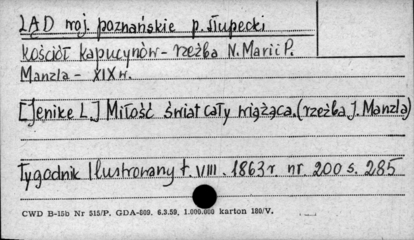 LĄD woj. poznańskie p. słupecki
Kościół Kapucynów - rzeźba N. Marii P.
Manzla - XIX w.
[Jenike L.] Miłość świat cały wiążąca. (rzeźba J. Manzla)
Tygodnik Ilustrowany t. VIII. 1863 r nr. 200 s. 285
CWD B-15b Nr 515/P. GDA-869. 6.3.59. 1.000.000 karton 180/V.